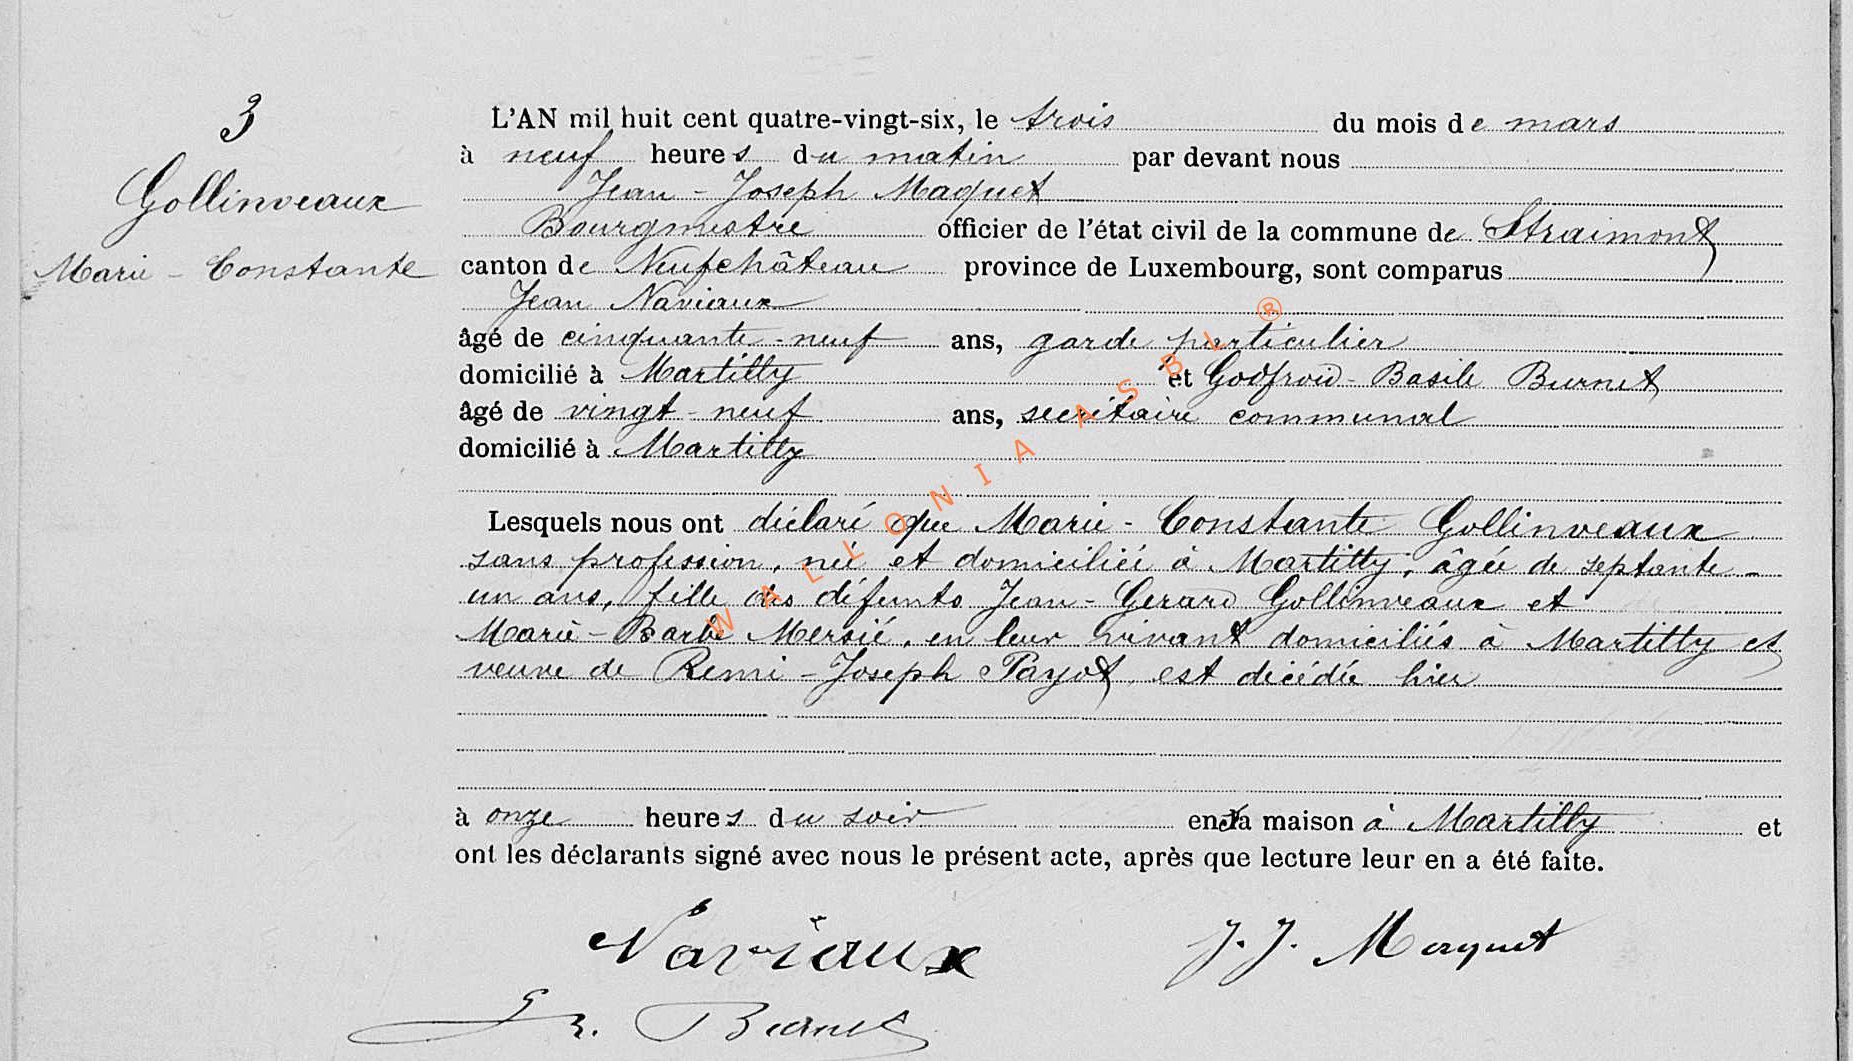 3
Gollinveaux
Marie - Constante
L'AN mil huit cent quatre-vingt-six, le trois du mois de mars
à neuf heures du matin par devant nous
Jean - Joseph Maquet
Bourgmestre officier de l'état civil de la commune de Straimont
canton de Neufchâteau province de Luxembourg, sont comparus
Jean Naviaux
âgé de cinquante-neuf ans, garde particulier
domicilié à Martilly et Godfroid-Basile Burnet
âgé de vingt-neuf ans, secrétaire communal
domicilié à Martilly
Lesquels nous ont déclaré que Marie - Constante Gollinveaux
sans profession, née et domiciliée à Martilly, âgée de septante-
un ans, fille des défunts Jean - Gerard Gollinveaux et
Marie - Barbe Mersié, en leur vivant domiciliés à Martilly et
veuve de Remi - Joseph Payot, est décédée hier
à onze heures du soir en sa maison à Martilly et
ont les déclarants signé avec nous le présent acte, après que lecture leur en a été faite.
Naviaux J. J. Maquet
Burnet
WALLONIA ASBL ®